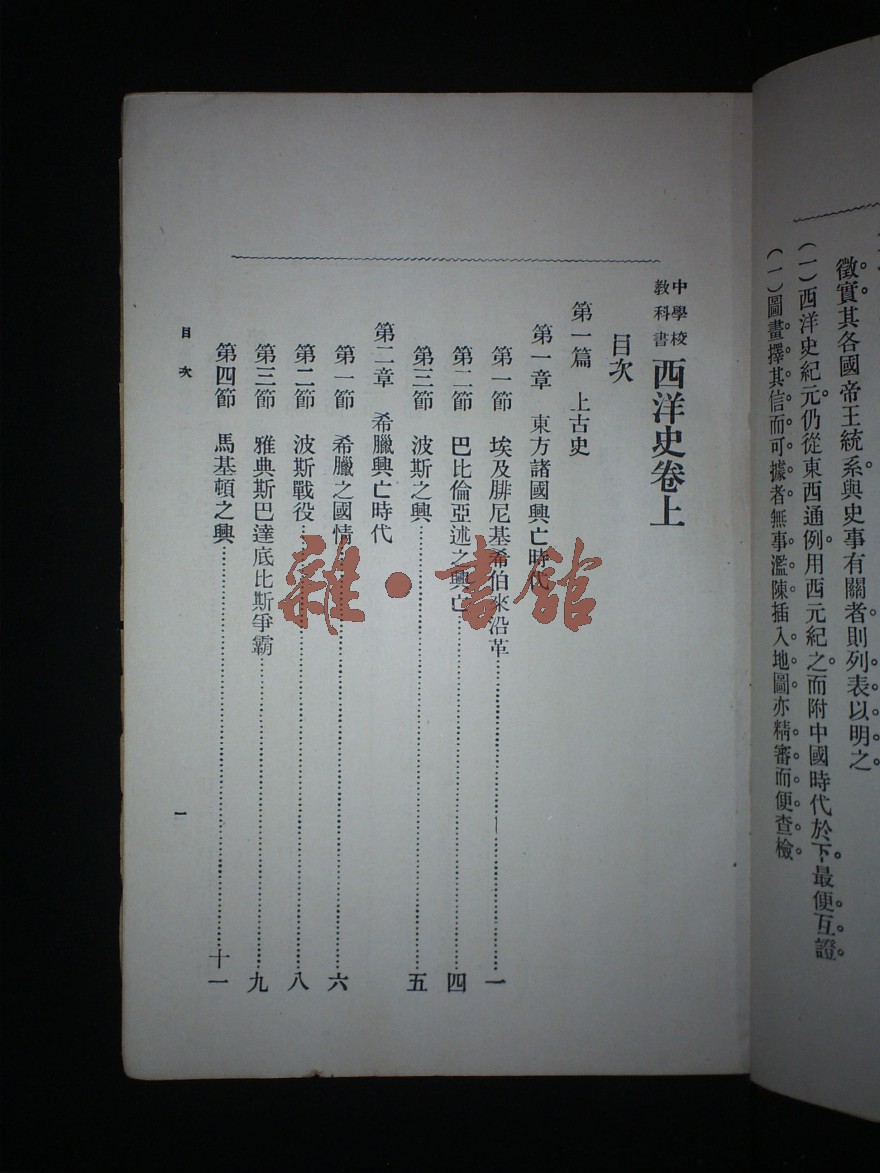 徵實其各國帝王統系與史事有關者則列表以明之
(一)西洋史紀元仍從東西通例用西元紀之而附中國時代於下最便互證
(一)圖畫擇其信而可據者無事濫陳插入地圖亦精審而便查檢
中學校教科書 西洋史卷上
目次
第一篇 上古史
第一章 東方諸國興亡時代
第一節 埃及腓尼基希伯來沿革 一
第二節 巴比倫亞述之興亡 四
第三節 波斯之興 五
第二章 希臘興亡時代
第一節 希臘之國情 六
第二節 波斯戰役 八
第三節 雅典斯巴達底比斯爭霸 九
第四節 馬基頓之興 十一
目次 一
雜·書館